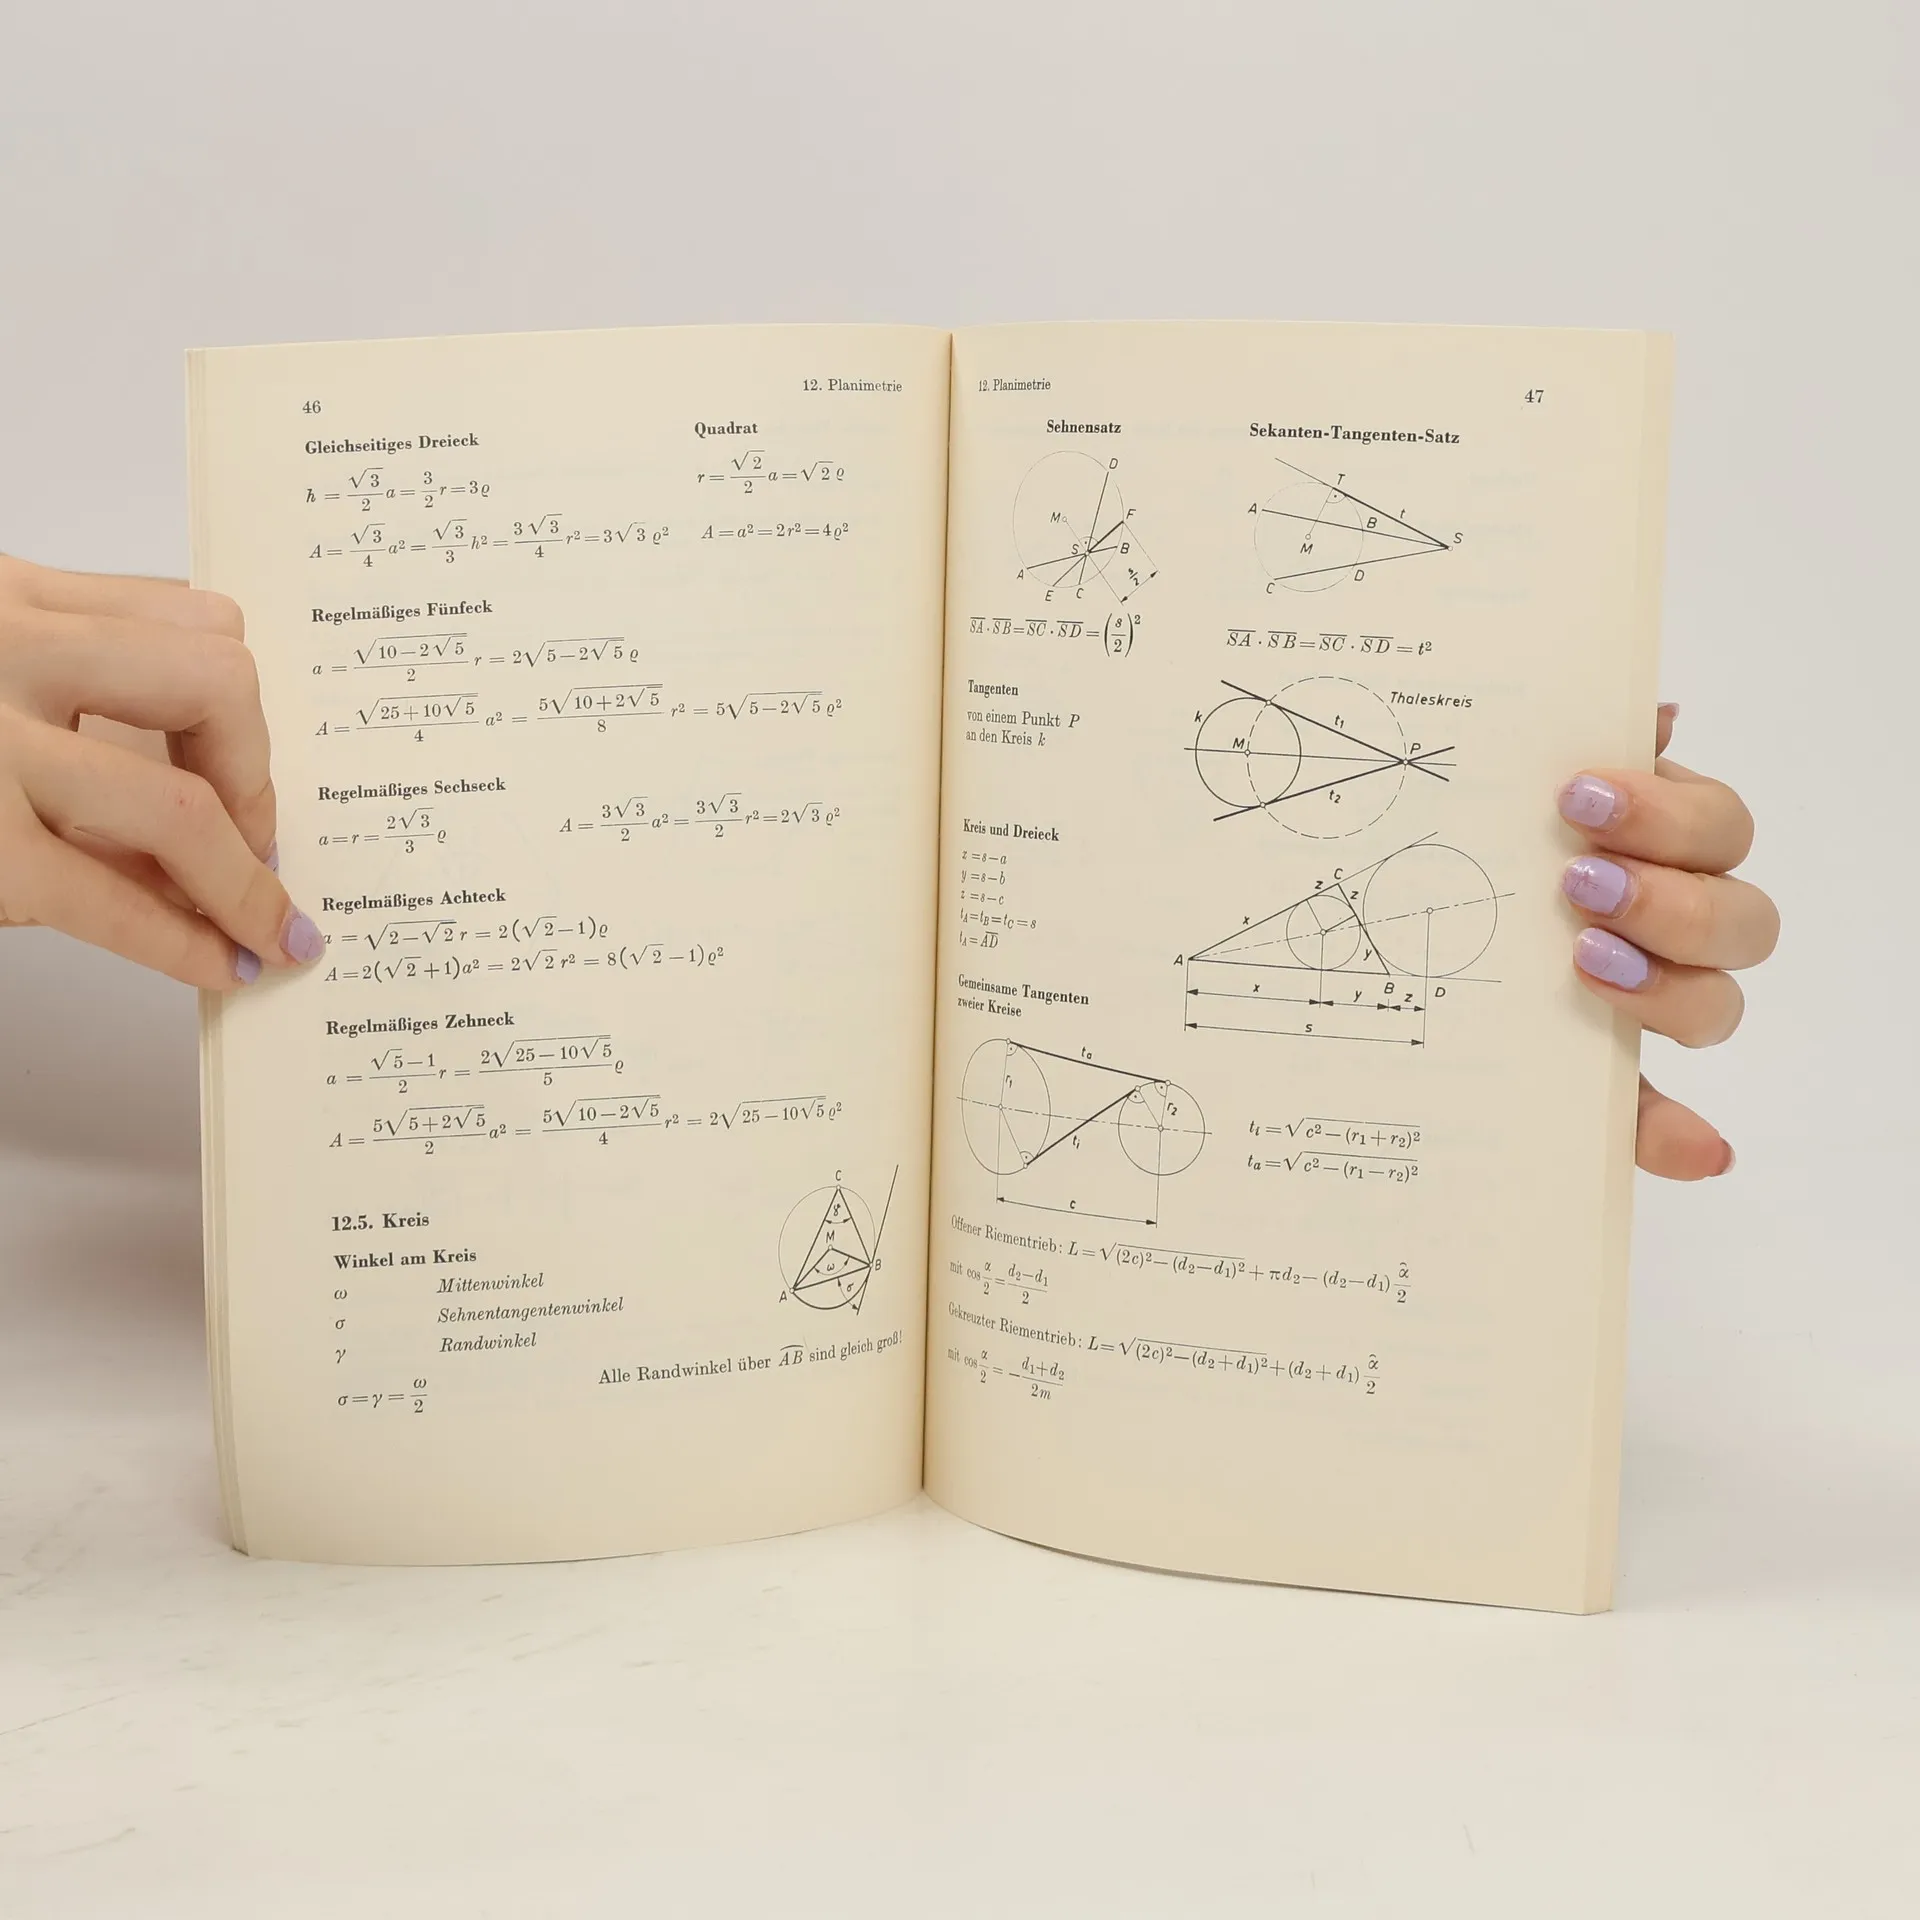 46
12. Planimetrie
Gleichseitiges Dreieck
h = √3/2 a = 3/2 r = 3ϱ
A = √3/4 a² = √3/3 h² = 3√3/4 r² = 3√3 ϱ²
Quadrat
r = √2/2 a = √2 ϱ
A = a² = 2r² = 4ϱ²
Regelmäßiges Fünfeck
a = √(10−2√5)/2 r = 2√(5−2√5) ϱ
A = √(25+10√5)/4 a² = 5√(10+2√5)/8 r² = 5√(5−2√5) ϱ²
Regelmäßiges Sechseck
a = r = 2√3/3 ϱ
A = 3√3/2 a² = 3√3/2 r² = 2√3 ϱ²
Regelmäßiges Achteck
a = √(2−√2) r = 2(√2−1)ϱ
A = 2(√2+1)a² = 2√2 r² = 8(√2−1)ϱ²
Regelmäßiges Zehneck
a = (√5−1)/2 r = 2√(25−10√5)/5 ϱ
A = 5√(5+2√5)/2 a² = 5√(10−2√5)/4 r² = 2√(25−10√5) ϱ²
12.5. Kreis
Winkel am Kreis
ω Mittenwinkel
σ Sehnentangentenwinkel
γ Randwinkel
σ = γ = ω/2
C
γ
M
ω
B
A
σ
Alle Randwinkel über AB sind gleich groß!
12. Planimetrie
47
Sehnensatz
D
M
F
S
B
A
E
C
s/2
SA · SB = SC · SD = (s/2)²
Sekanten-Tangenten-Satz
T
A
B
t
S
M
C
D
SA · SB = SC · SD = t²
Tangenten
von einem Punkt P
an den Kreis k
k
M
t₁
P
t₂
Thaleskreis
Kreis und Dreieck
x = s−a
y = s−b
z = s−c
t_A = t_B = t_C = s
t_A = AD
C
z
z
x
y
A
B
D
x
y
z
s
Gemeinsame Tangenten
zweier Kreise
tₐ
r₁
r₂
tᵢ
c
tᵢ = √(c²−(r₁+r₂)²)
tₐ = √(c²−(r₁−r₂)²)
Offener Riementrieb: L = √((2c)²−(d₂−d₁)²) + πd₂ − (d₂−d₁) α̂/2
mit cos α/2 = (d₂−d₁)/2
Gekreuzter Riementrieb: L = √((2c)²−(d₂+d₁)²) + (d₂+d₁) α̂/2
mit cos α/2 = − (d₁+d₂)/2m